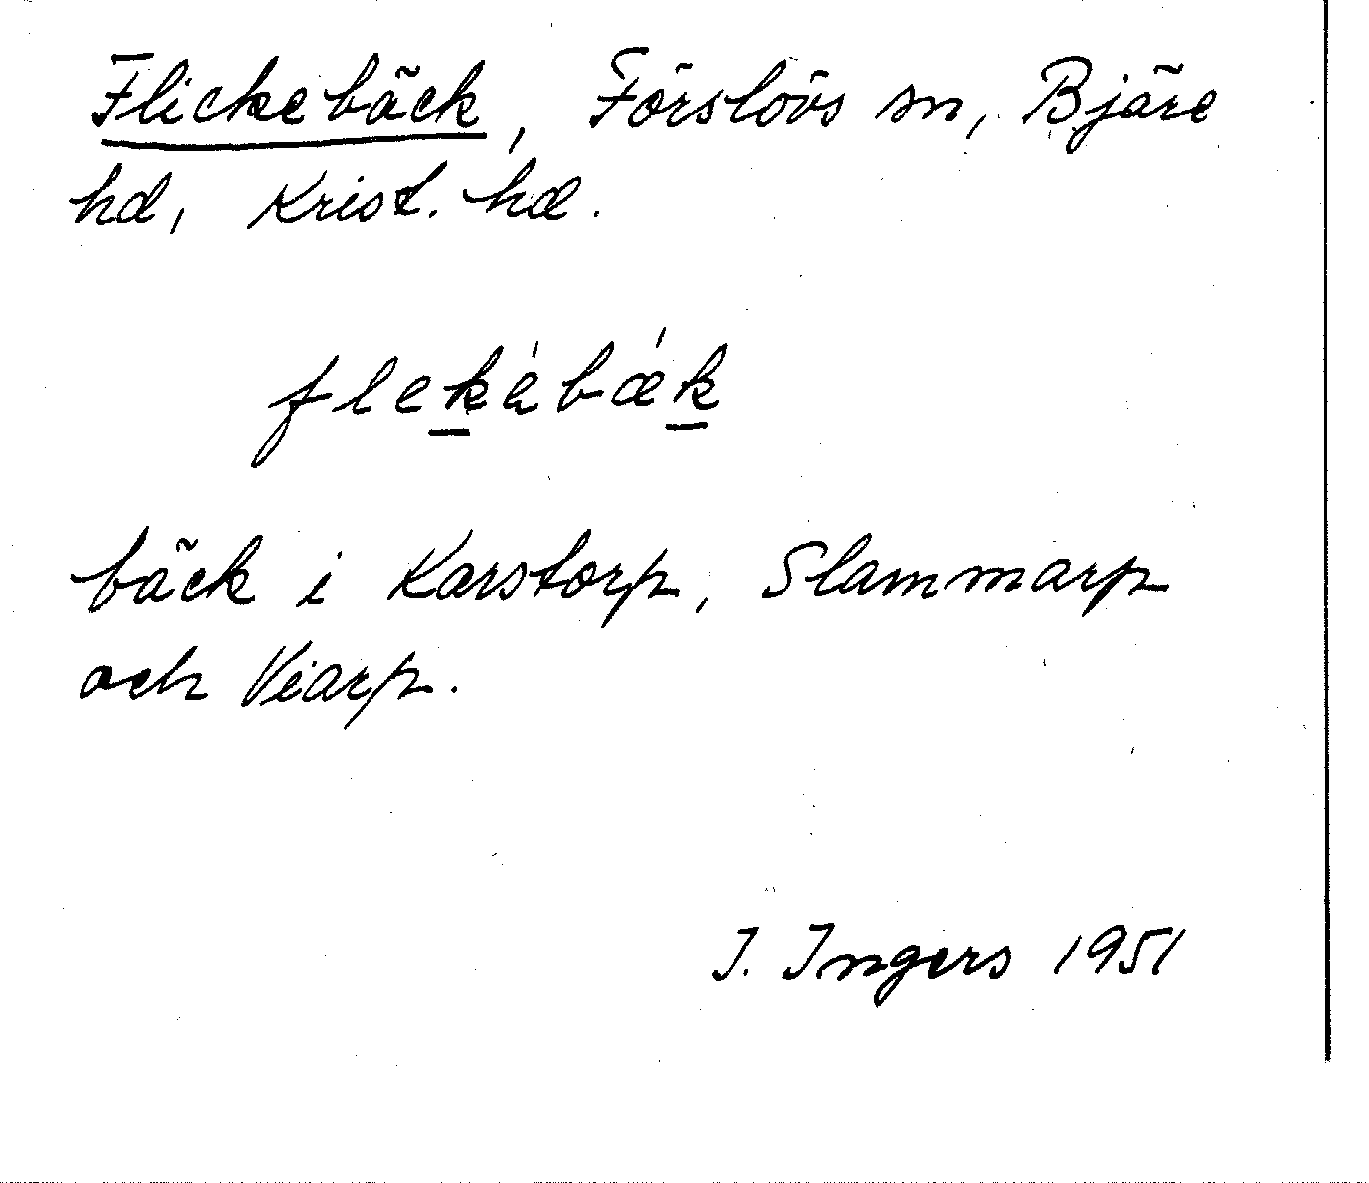 Flickebäck, Förslövs sn, Bjäre
hd, Krist. hd.
flekàbǽk
bäck i Karstorp, Slammarp
och Viarp.
I. Ingers 1951